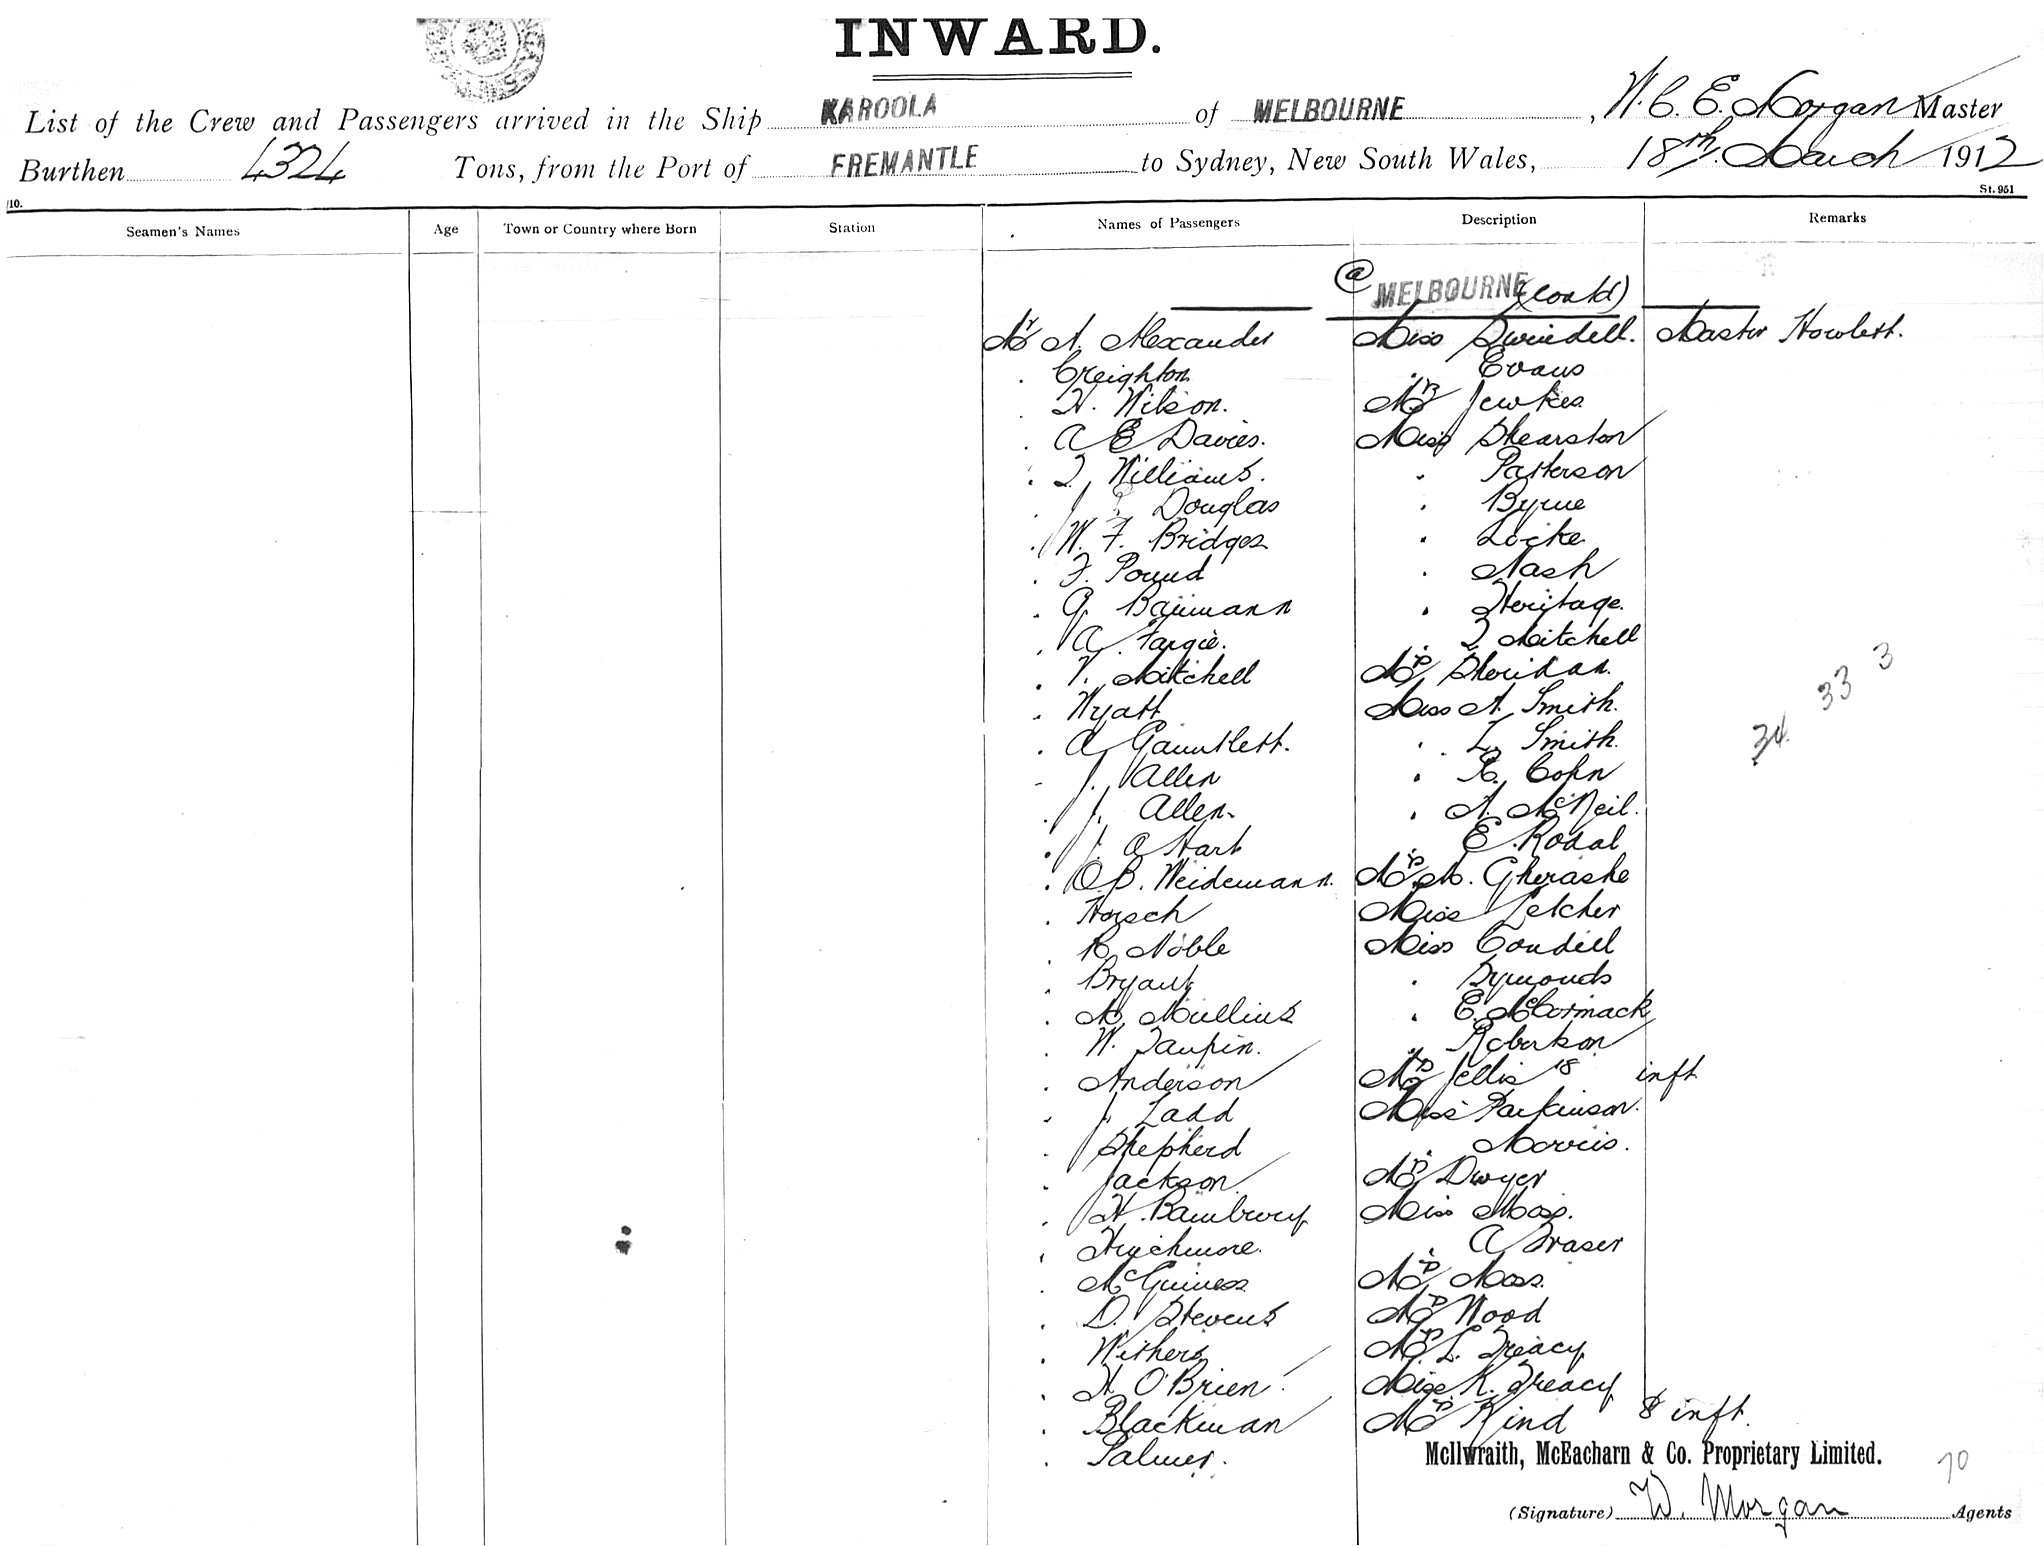 INWARD.
List of the Crew and Passengers arrived in the Ship KAROOLA of MELBOURNE, W. C. E. Morgan Master
Burthen 4324 Tons, from the Port of FREMANTLE to Sydney, New South Wales, 18th. March 1912
/10. St. 951
Seamen's Names Age Town or Country where Born Station Names of Passengers Description Remarks
@ MELBOURNE (contd)
Mr A. Alexander Miss Swindell. Master Howlett.
. Creighton . Evans
. H. Wilson. Mrs Jewkes
. A E Davies. Miss Shearston
. T. Williams. . Patterson
. J Douglas . Byrne
. W. F. Bridges . Locke
. F. Pound . Nash
. G. Baumann . Heritage.
. A. Fargie. . T Mitchell
. V. Mitchell Mrs Sheridan.
. Wyatt Miss A. Smith.
. A Gauntlett. . L. Smith.
. J. Allen . R. Cohn
. J. Allen. . A. McNeil.
. J. A Hart . E. Rodal
. O. B. Weidemann. Mrs M. Gherashe
. Horsch Miss Letcher
. R. Noble Miss Condell
. Bryant . Symonds
. M. Mullins . E. McCormack
. W. Taupin. . Robertson
. Anderson Mrs Jellis & inft
. J. Ladd Miss Parkinson.
. Shepherd . Morris.
. Jackson. Mrs Dwyer
. H. Miss Moss.
. . A Fraser
. McGuiness Mrs Moss.
. D. Stevens Mrs Wood
. Withers Mrs L. Treacy
. H O'Brien. Miss K. Treacy
. Blackman Mrs Kind & inft.
. Palmer.
34 33 3
McIlwraith, McEacharn & Co. Proprietary Limited.
70
(Signature) W. Morgan Agents